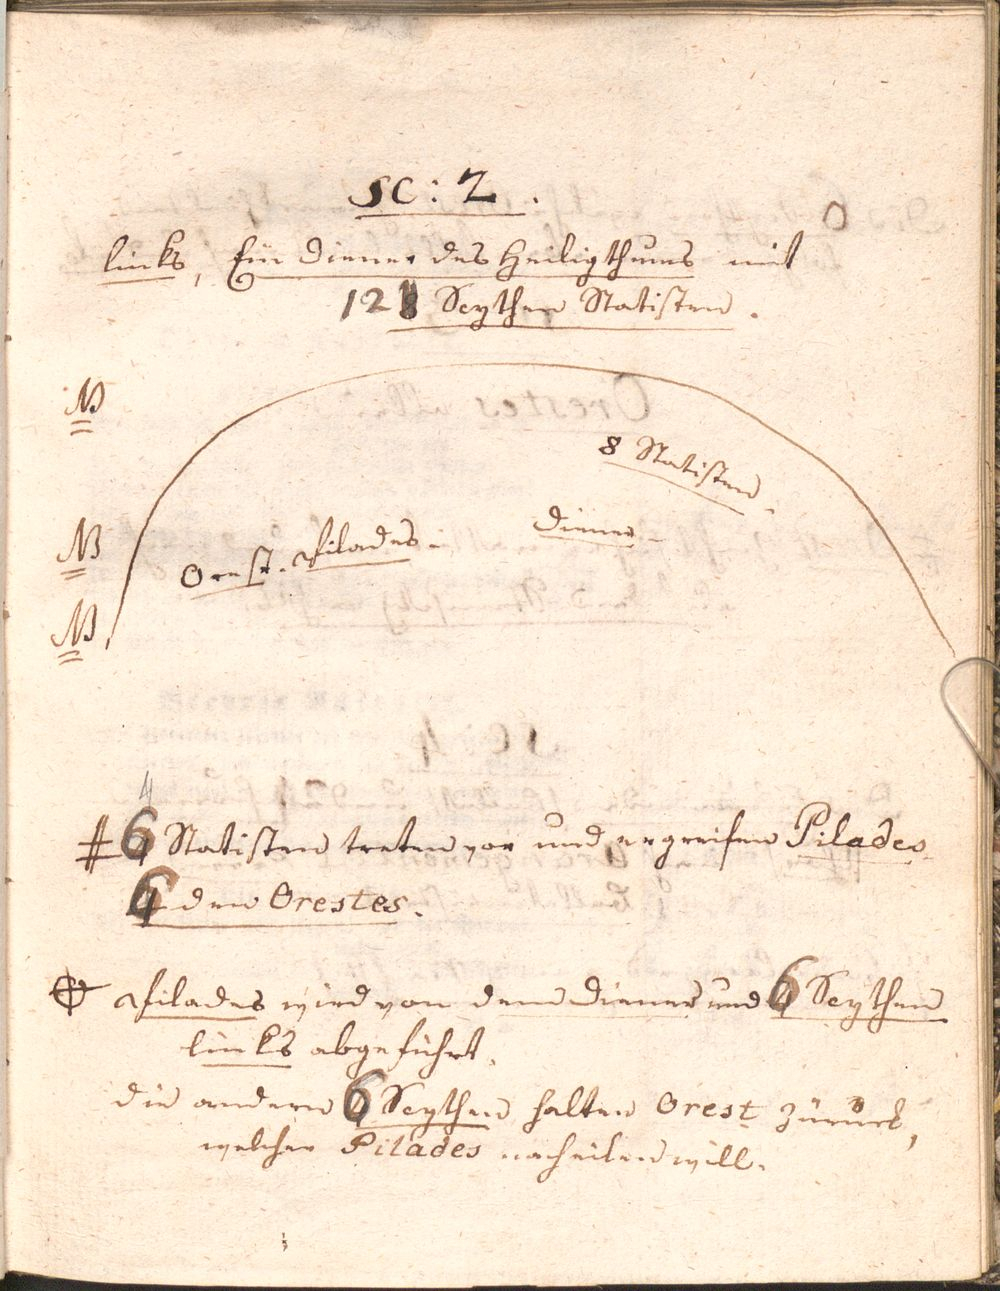 SC: 2.
O
links, Ein Diener des Heiligthums mit
12 8 Scythen Statisten.
NB
8 Statisten.
NB
Diener.
Orest. Pilades.
NB
4
# 6 Statisten treten vor und ergreifen Pilades
6 den Orestes.
Pilades wird von dem Diener und 6 Scythen
links abgeführt.
die andern 6 Scythen halten Orest zurück,
welcher Pilades nacheilen will.